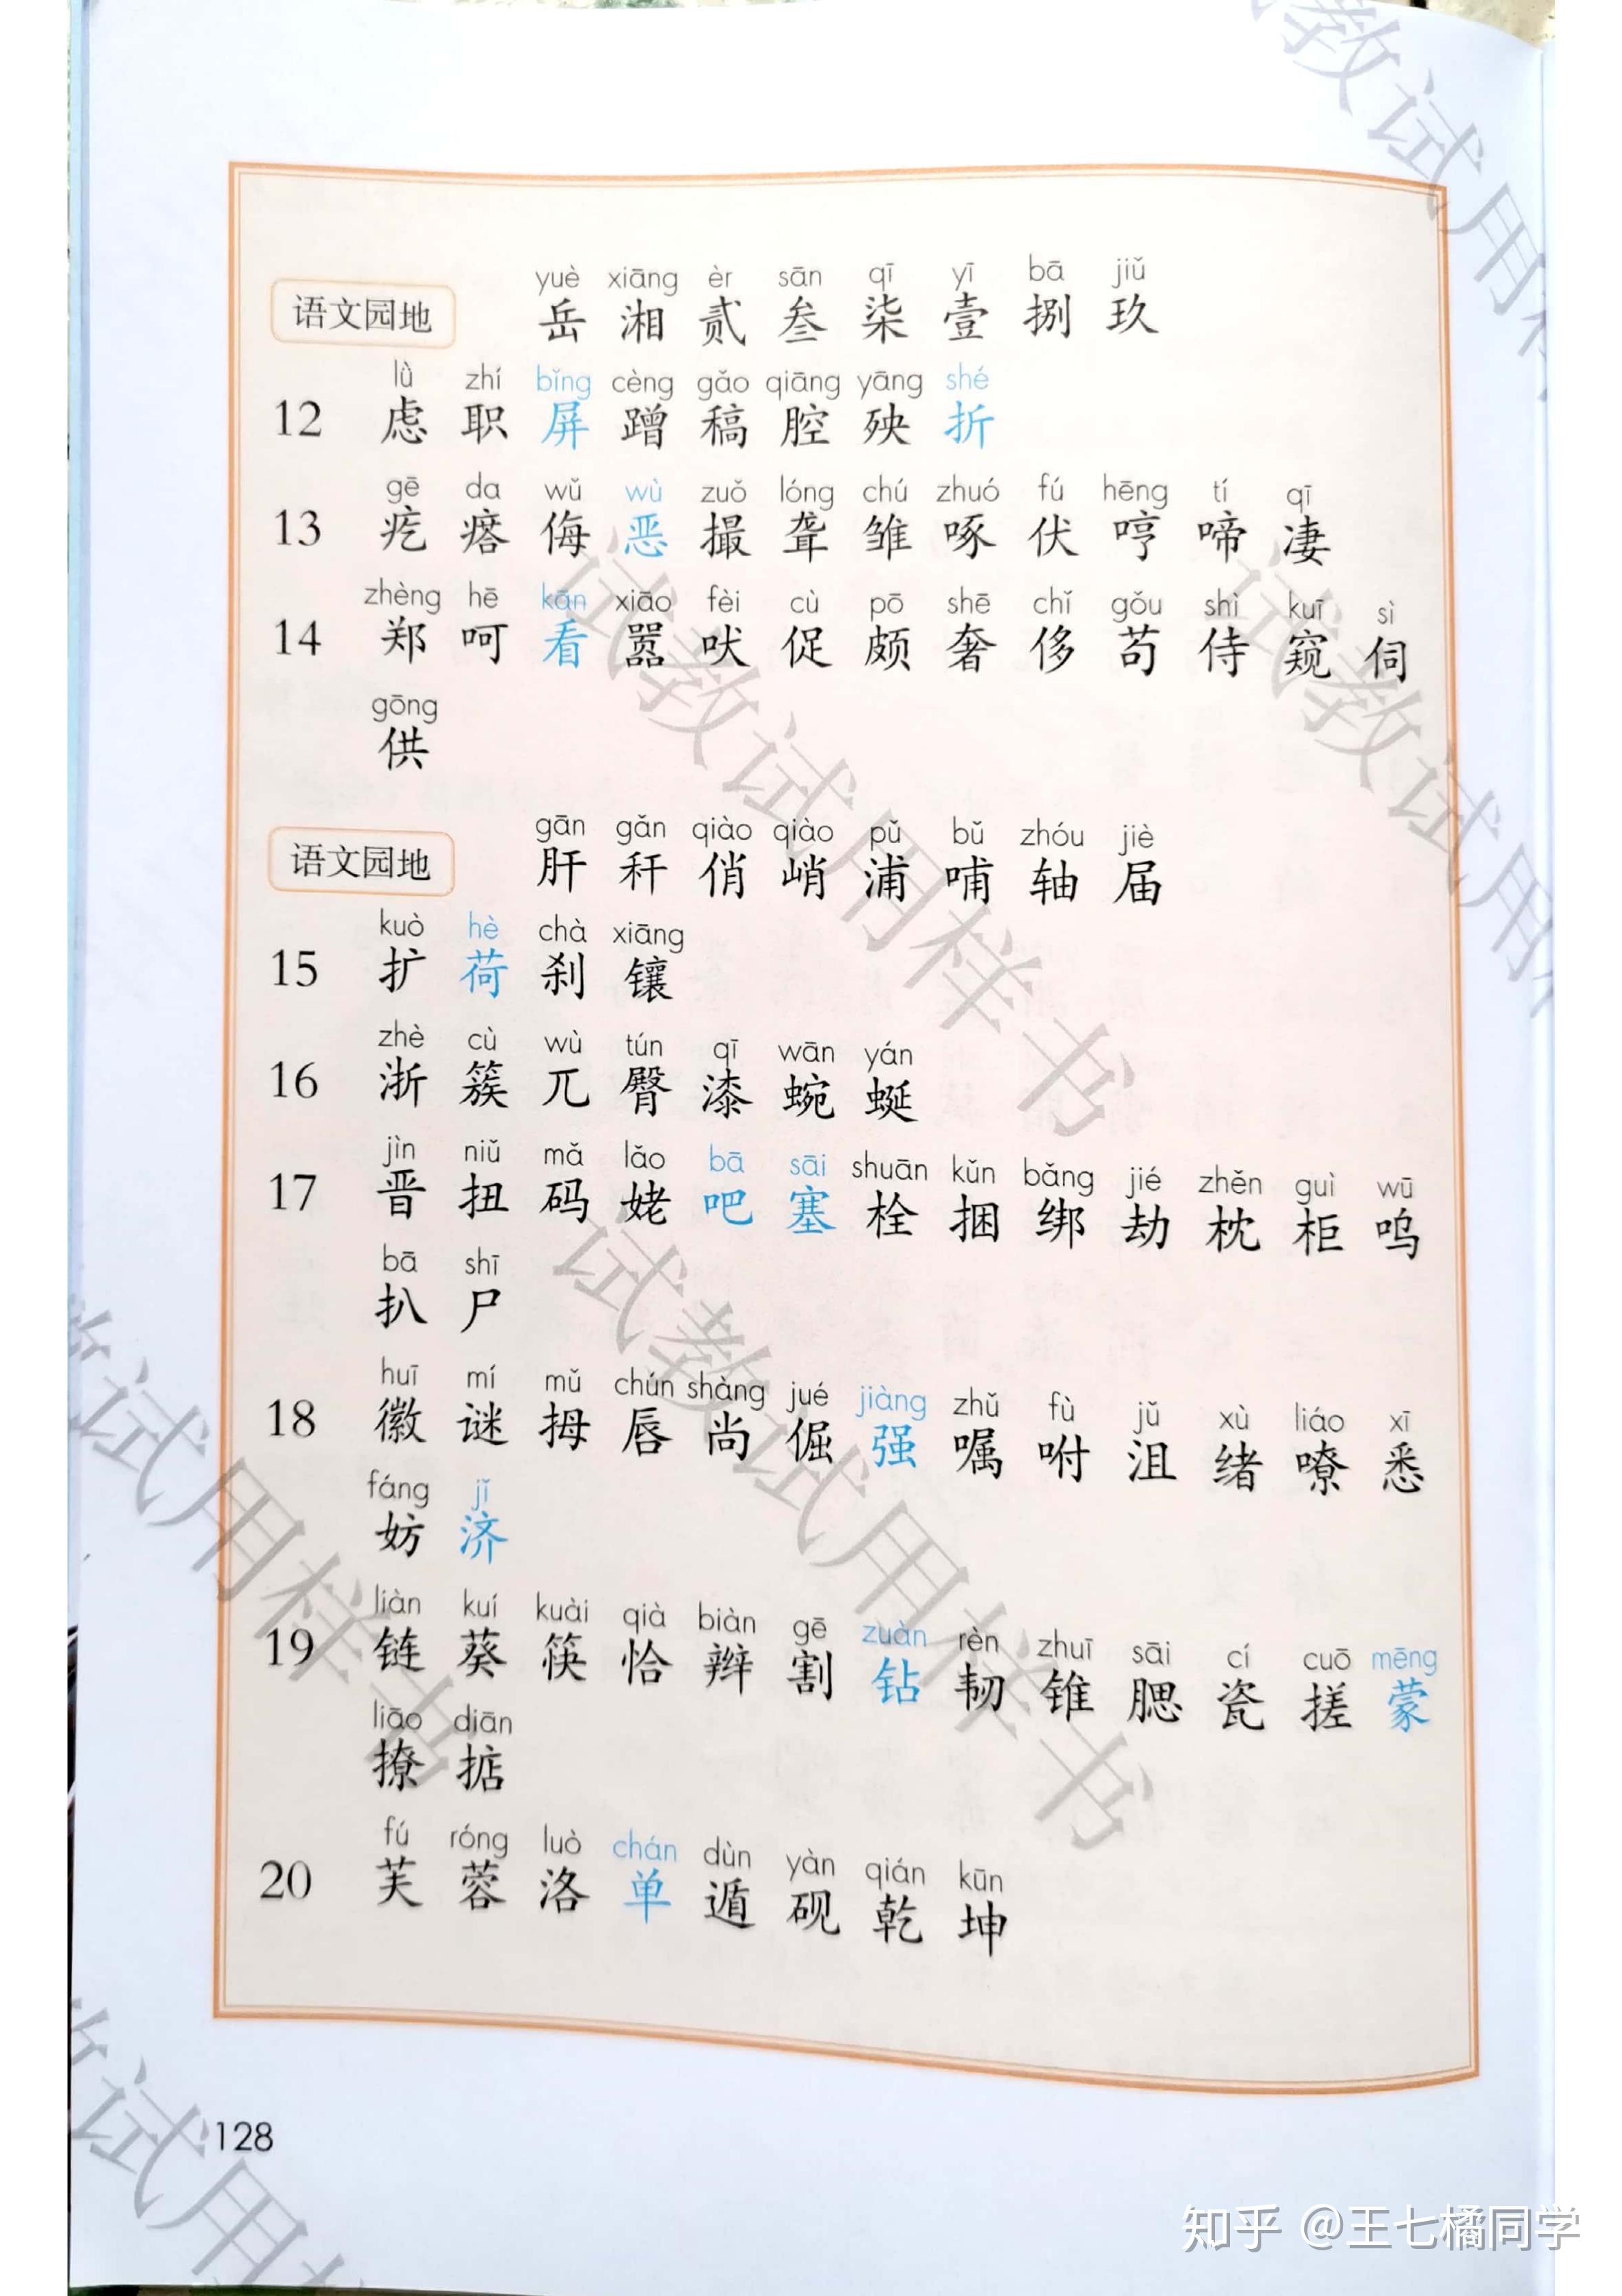 yuè xiāng èr sān qī yī bā jiǔ
语文园地 岳 湘 贰 叁 柒 壹 捌 玖
lǜ zhí bǐng cèng gǎo qiāng yāng shé
12 虑 职 屏 蹭 稿 腔 殃 折
gē da wǔ wù zuǒ lóng chú zhuó fú hēng tí qī
13 疙 瘩 侮 恶 撮 聋 雏 啄 伏 哼 啼 凄
zhèng hē kān xiāo fèi cù pō shē chǐ gǒu shì kuī sì
14 郑 呵 看 嚣 吠 促 颇 奢 侈 苟 侍 窥 伺
gōng
供
gān gǎn qiào qiào pǔ bǔ zhóu jiè
语文园地 肝 秆 俏 峭 浦 哺 轴 届
kuò hè chà xiāng
15 扩 荷 刹 镶
zhè cù wù tún qī wān yán
16 浙 簇 兀 臀 漆 蜿 蜒
jìn niǔ mǎ lǎo bā sāi shuān kǔn bǎng jié zhěn guì wū
17 晋 扭 码 姥 吧 塞 栓 捆 绑 劫 枕 柜 呜
bā shī
扒 尸
huī mí mǔ chún shàng jué jiàng zhǔ fù jǔ xù liáo xī
18 徽 谜 拇 唇 尚 倔 强 嘱 咐 沮 绪 嘹 悉
fáng jǐ
妨 济
liàn kuí kuài qià biàn gē zuàn rèn zhuī sāi cí cuō mēng
19 链 葵 筷 恰 辫 割 钻 韧 锥 腮 瓷 搓 蒙
liāo diān
撩 掂
fú róng luò chán dùn yàn qián kūn
20 芙 蓉 洛 单 遁 砚 乾 坤
128
试教试用样书
试教试用样书
知乎 @王七橘同学